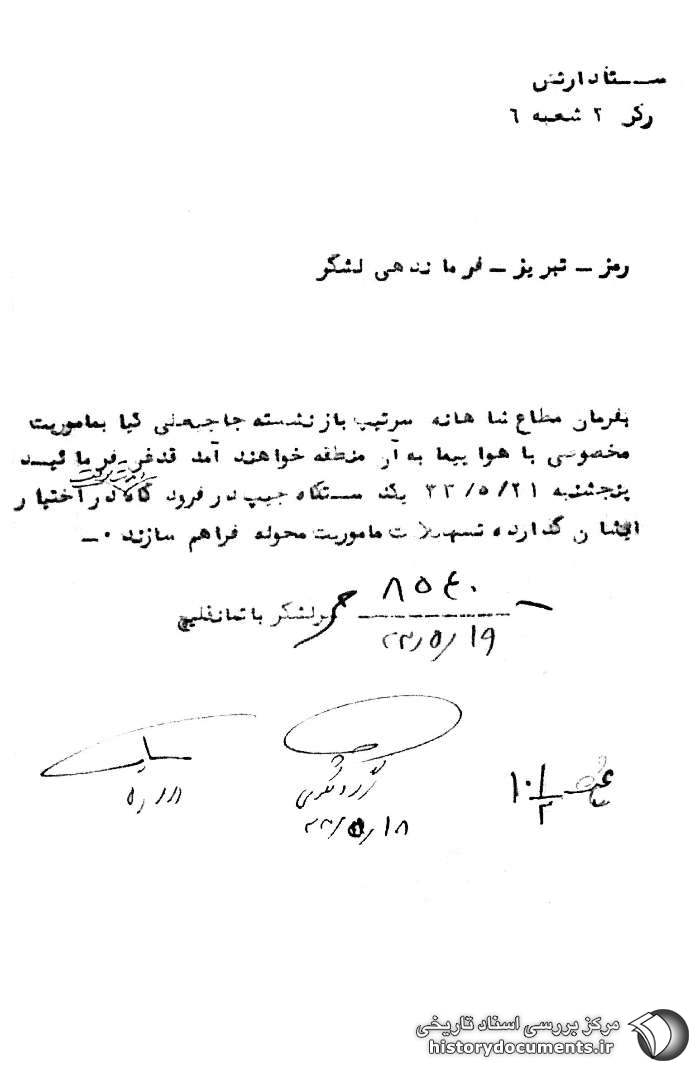 ستاد ارتش
رکن ۲ شعبه ٦
رمز – تبریز – فرماندهی لشگر
بفرمان مطاع شاهانه سرتیپ بازنشسته حاجیعلی کیا بماموریت
مخصوصی با هواپیما به آن منطقه خواهند آمد قدغن فرمائید
پنجشنبه ۳۳/۵/۲۱ یک دستگاه جیپ در فرودگاه در اختیار
ایشان گذارده تسهیلات ماموریت محوله فراهم سازند ۰ــ
۸۵۴۰
سرلشکر باتمانقلیچ
۳۳/۵/۱۹
۳۳/۵/۱۸
۱۰
مرکز بررسی اسناد تاریخی
historydocuments.ir